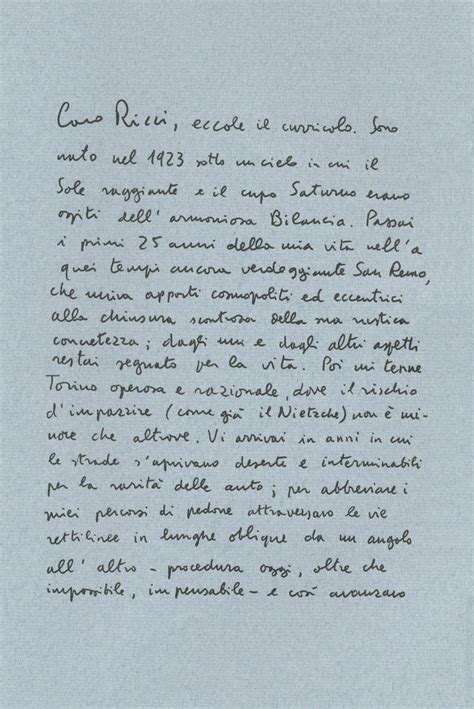 Caro Ricci, eccole il curricolo. Sono
nato nel 1923 sotto un cielo in cui il
Sole raggiante e il cupo Saturno erano
ospiti dell'armoniosa Bilancia. Passai
i primi 25 anni della mia vita nell'a
quei tempi ancora verdeggiante San Remo,
che univa apporti cosmopoliti ed eccentrici
alla chiusura scontrosa della sua rustica
concretezza; dagli uni e dagli altri aspetti
restai segnato per la vita. Poi mi tenne
Torino operosa e razionale, dove il rischio
d'impazzire (come già il Nietzche) non è mi-
nore che altrove. Vi arrivai in anni in cui
le strade s'aprivano deserte e interminabili
per la rarità delle auto; per abbreviare i
miei percorsi di pedone attraversavo le vie
rettilinee in lunghe oblique da un angolo
all'altro - procedura oggi, oltre che
impossibile, impensabile - e così avanzavo